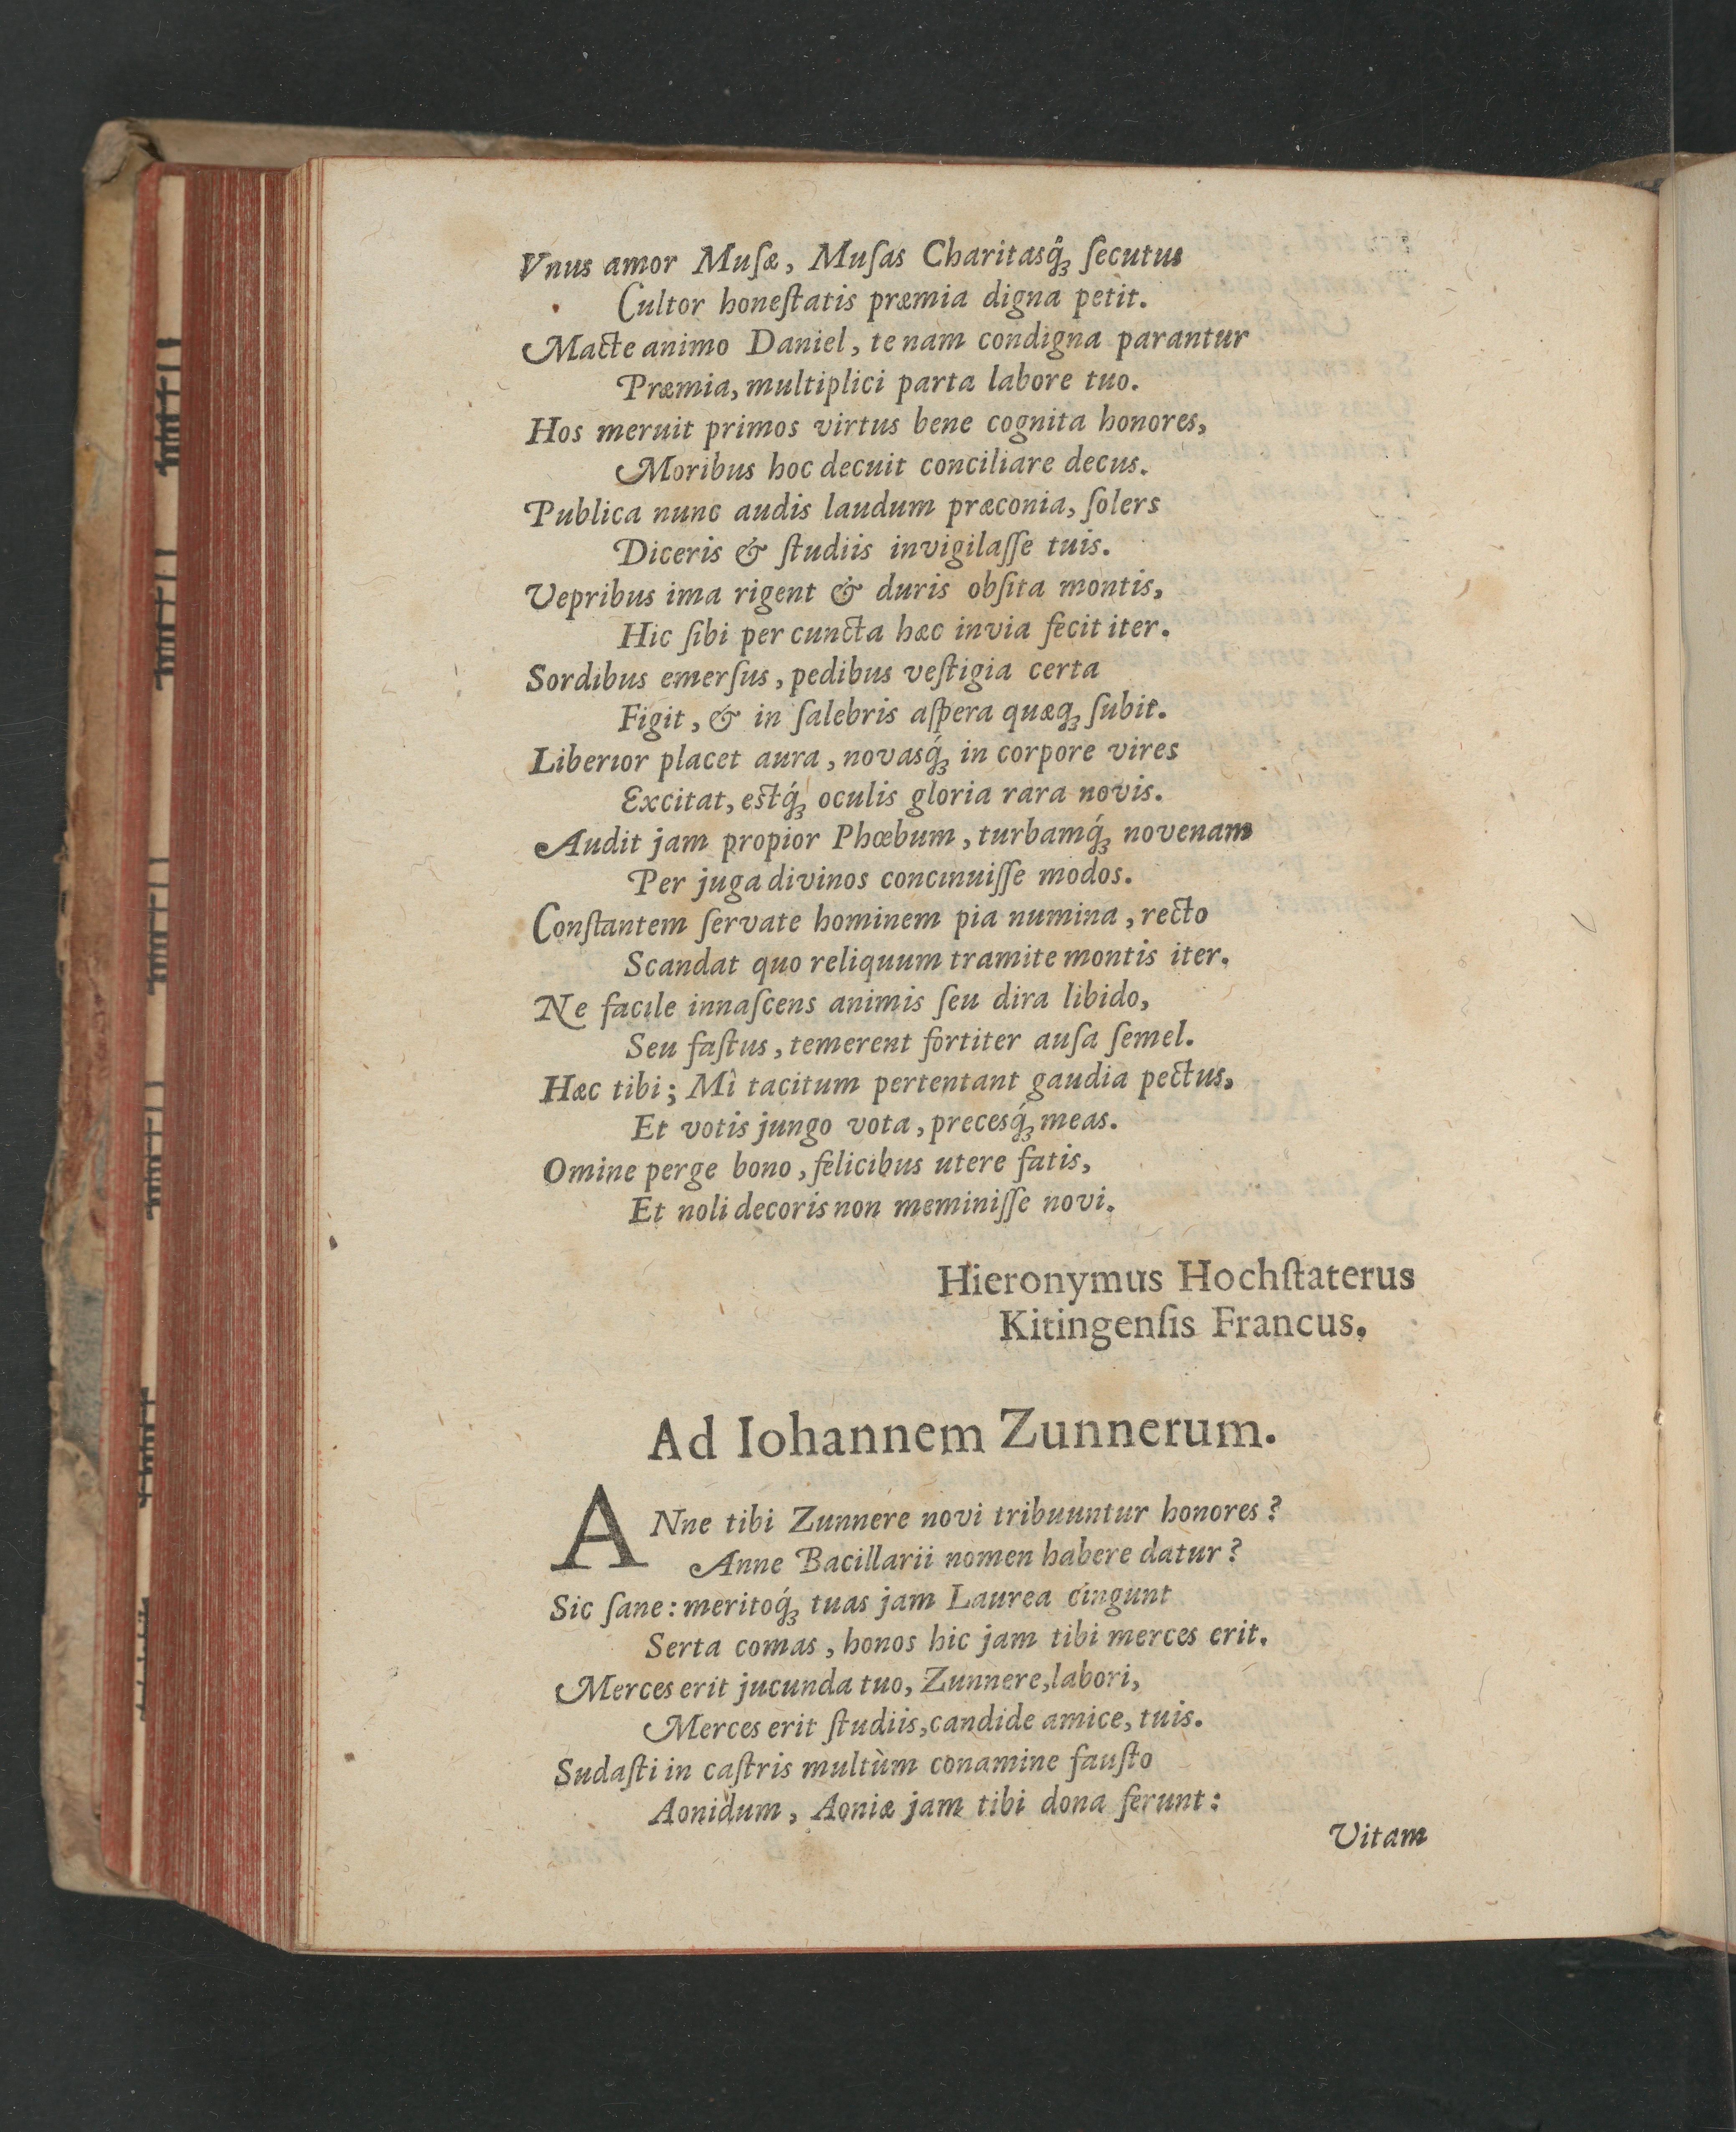 Vnus amor Muſæ, Muſas Charitasq́ꝫ ſecutus
Cultor honeſtatis præmia digna petit.
Macte animo Daniel, te nam condigna parantur
Præmia, multiplici parta labore tuo.
Hos meruit primos virtus bene cognita honores,
Moribus hoc decuit conciliare decus.
Publica nunc audis laudum præconia, ſolers
Diceris & ſtudiis invigilaſſe tuis.
Vepribus ima rigent & duris obſita montis,
Hic ſibi per cuncta hæc invia fecit iter.
Sordibus emerſus, pedibus veſtigia certa
Figit, & in ſalebris aſpera quæqꝫ ſubit.
Liberior placet aura, novasq́ꝫ in corpore vires
Excitat, estq́ꝫ oculis gloria rara novis.
Audit jam propior Phœbum, turbamq́ꝫ novenam
Per juga divinos concinuiſſe modos.
Conſtantem ſervate hominem pia numina, recto
Scandat quo reliquum tramite montis iter.
Ne facile innaſcens animis ſeu dira libido,
Seu faſtus, temerent fortiter auſa ſemel.
Hæc tibi; Mî tacitum pertentant gaudia pectus,
Et votis jungo vota, precesq́ꝫ meas.
Omine perge bono, felicibus utere fatis,
Et noli decoris non meminiſſe novi.
Hieronymus Hochſtaterus
Kitingenſis Francus.
Ad Iohannem Zunnerum.
ANne tibi Zunnere novi tribuuntur honores?
Anne Bacillarii nomen habere datur?
Sic ſane: meritoq́ꝫ tuas jam Laurea cingunt
Serta comas, honos hic jam tibi merces erit.
Merces erit jucunda tuo, Zunnere, labori,
Merces erit ſtudiis, candide amice, tuis.
Sudaſti in caſtris multùm conamine fauſto
Aonidum, Aoniæ jam tibi dona ferunt:
Vitam